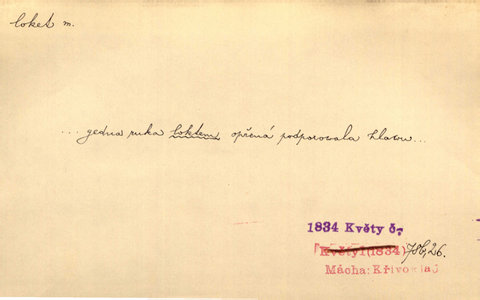 loket m.
... gedna ruka loktem opřená podporowala hlawu...
1834 Květy č.
Květy (1834)
Mácha: Křivoklad